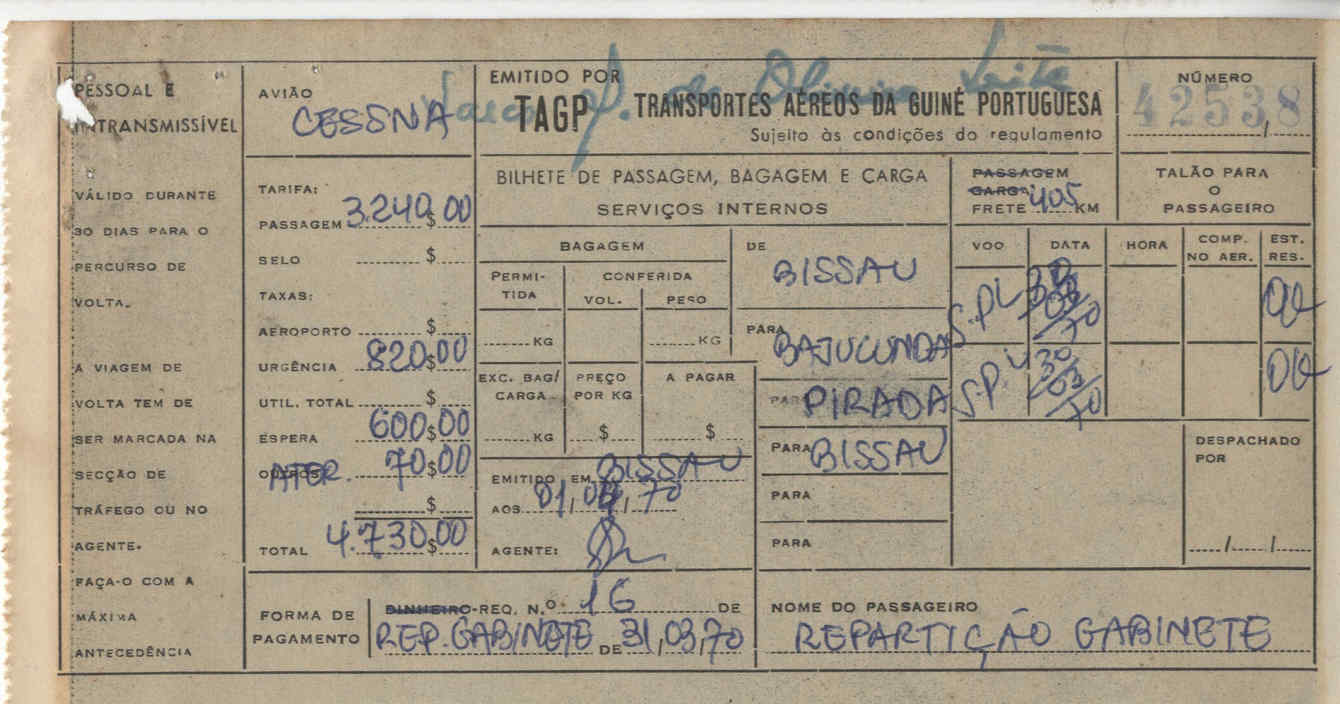 PESSOAL E
INTRANSMISSÍVEL
VÁLIDO DURANTE
30 DIAS PARA O
PERCURSO DE
VOLTA.
A VIAGEM DE
VOLTA TEM DE
SER MARCADA NA
SECÇÃO DE
TRÁFEGO OU NO
AGENTE.
FAÇA-O COM A
MÁXIMA
ANTECEDÊNCIA
AVIÃO
CESSNA
TARIFA:
PASSAGEM 3.240$00
SELO $
TAXAS:
AEROPORTO $
URGÊNCIA 820$00
UTIL. TOTAL $
ESPERA 600$00
OUTROS ATER. 70$00
$
TOTAL 4.730$00
EMITIDO POR
de Oliveira Leite
TAGP TRANSPORTES AÉREOS DA GUINÉ PORTUGUESA
Sujeito às condições do regulamento
NÚMERO
42538
BILHETE DE PASSAGEM, BAGAGEM E CARGA
SERVIÇOS INTERNOS
PASSAGEM
CARGA
FRETE 405 KM
TALÃO PARA
O
PASSAGEIRO
BAGAGEM
PERMITIDA
CONFERIDA
VOL. PESO
KG KG
EXC. BAG/
CARGA
PREÇO
POR KG
A PAGAR
KG $ $
EMITIDO EM BISSAU
AOS 01, ,70
AGENTE:
DE
BISSAU
PARA BAJUCUNDA
PARA PIRADA
PARA BISSAU
PARA
PARA
VOO DATA HORA COMP. NO AER. EST. RES.
S.PL 03 70 OK
S.PL 30 03 70 OK
DESPACHADO
POR
/ /
FORMA DE
PAGAMENTO
DINHEIRO-REQ. N.º 16 DE
REP. GABINETE DE 31,03,70
NOME DO PASSAGEIRO
REPARTIÇÃO GABINETE